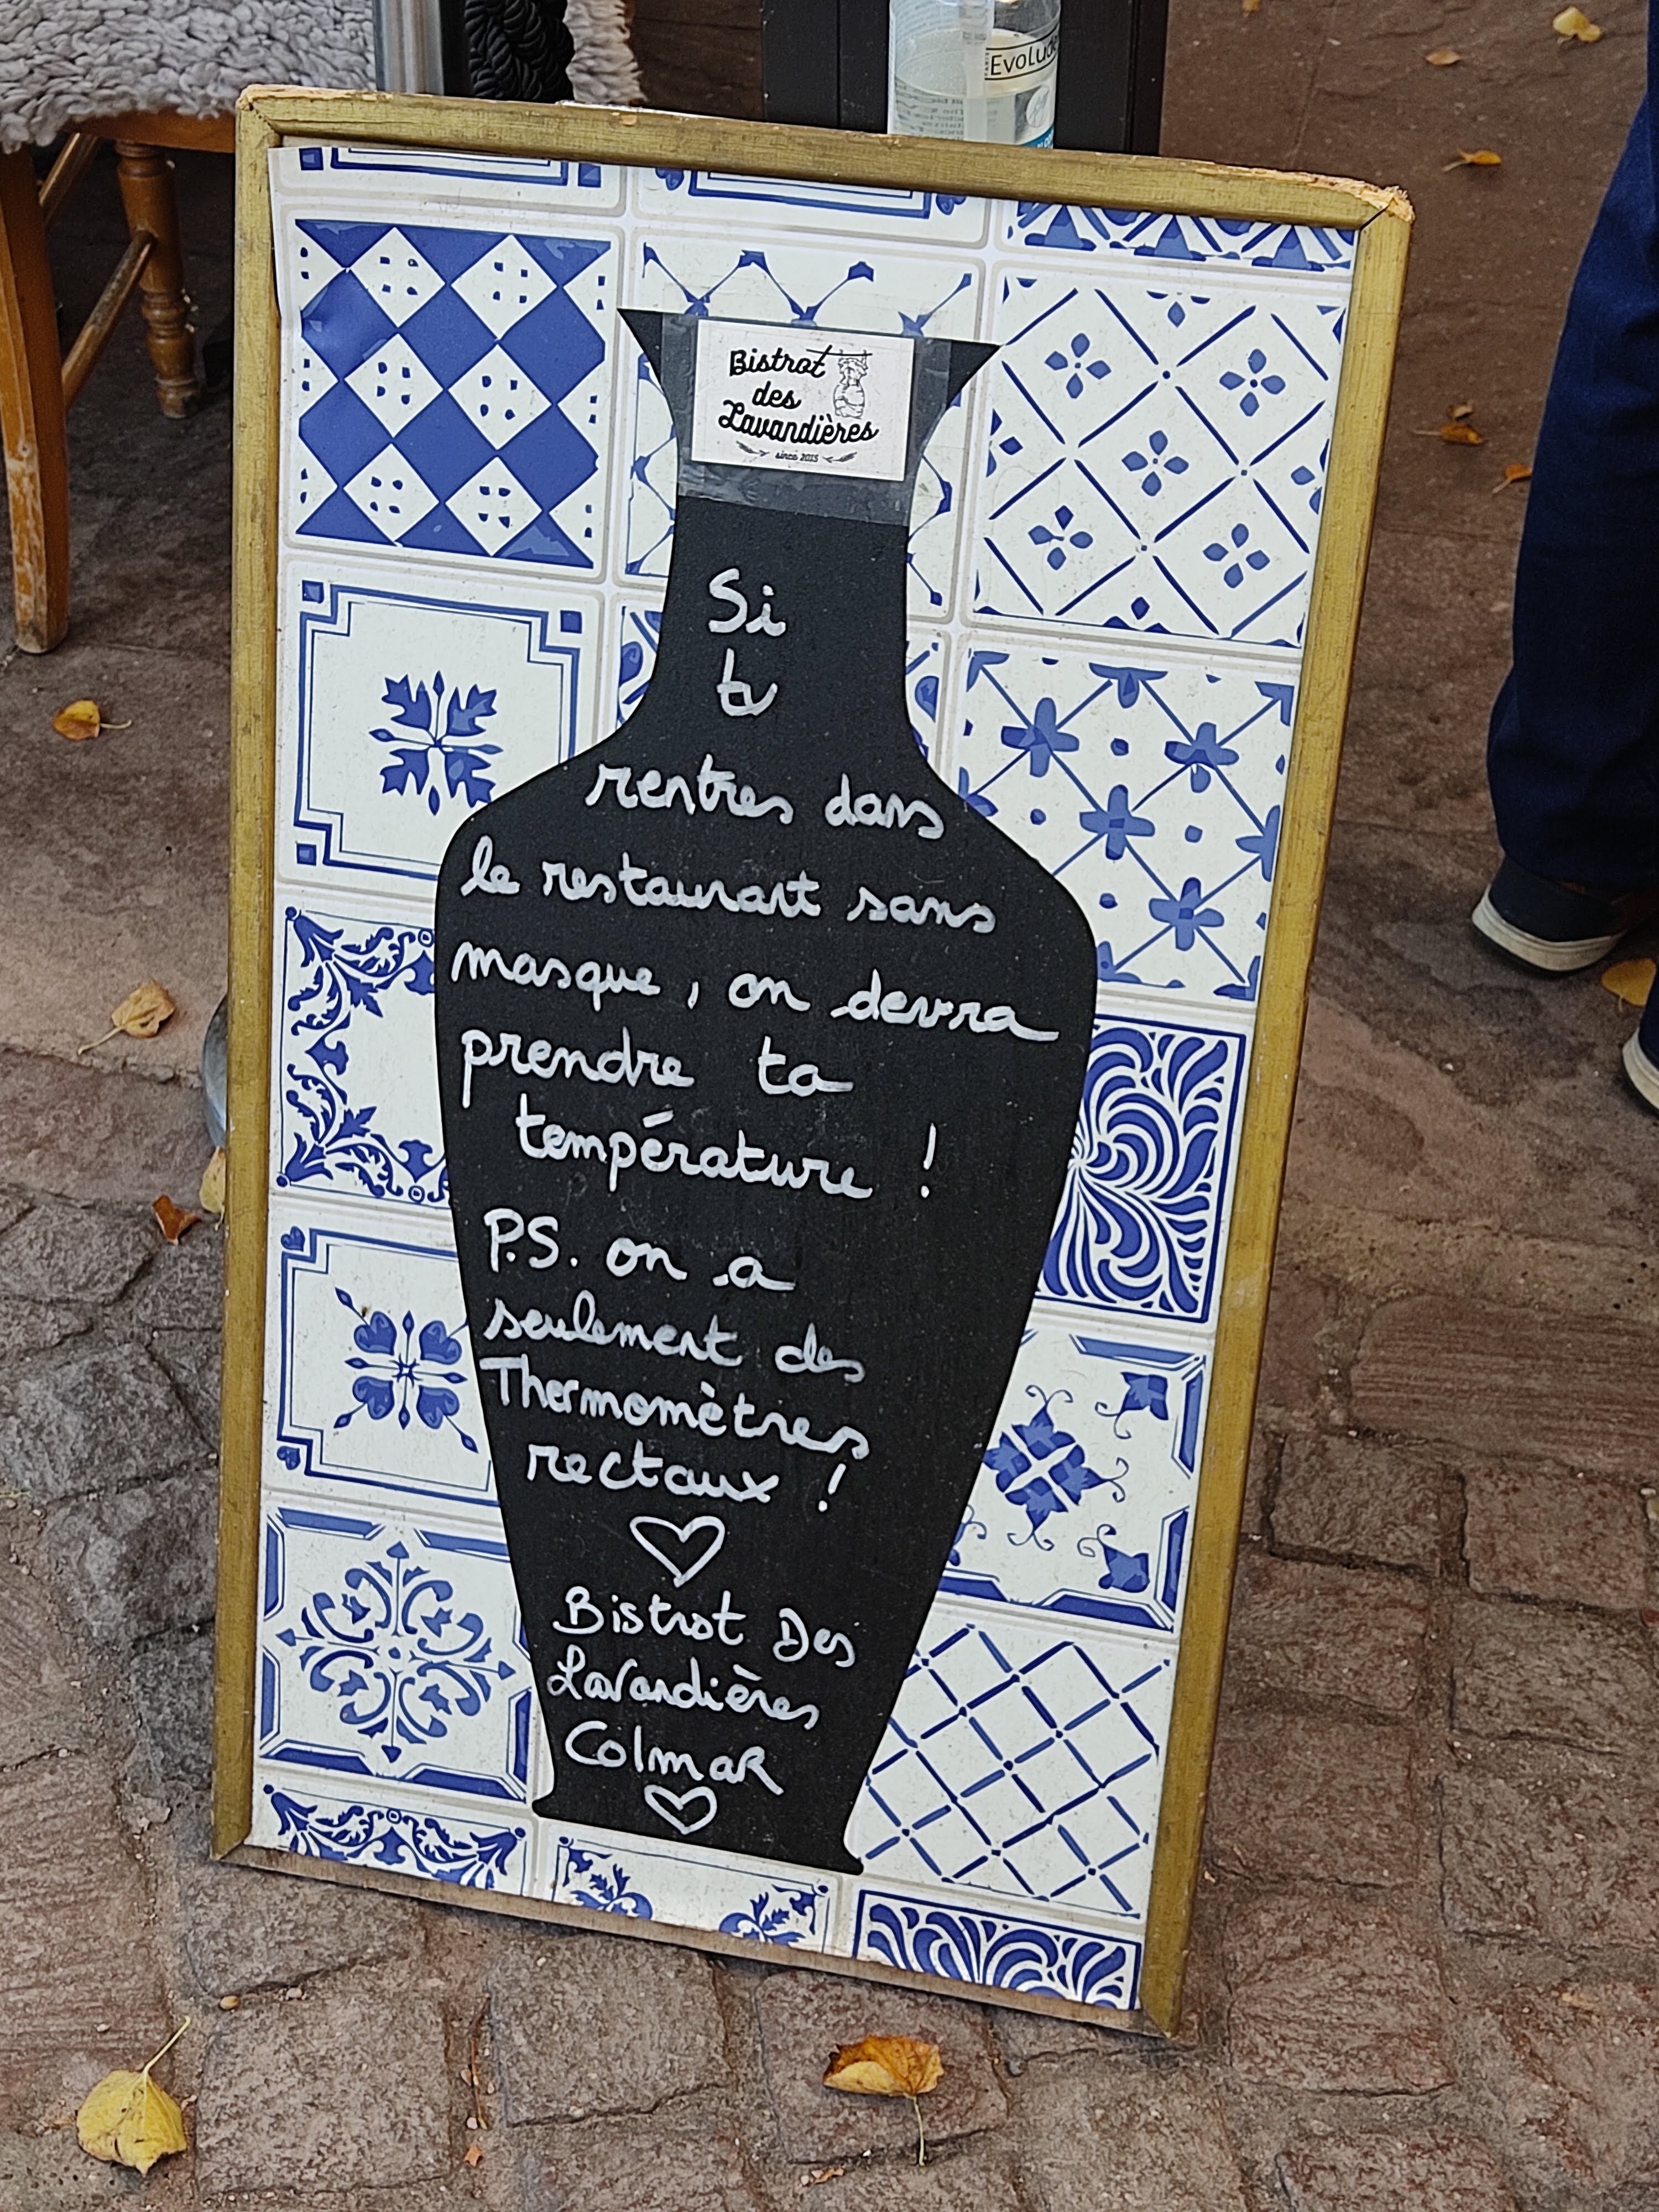 Evolud
Bistrot
des
Lavandières
since 2015
Si
tu
rentres dans
le restaurant sans
masque, on devra
prendre ta
température !
P.S. on a
seulement des
Thermomètres
rectaux !
Bistrot Des
Lavandières
Colmar